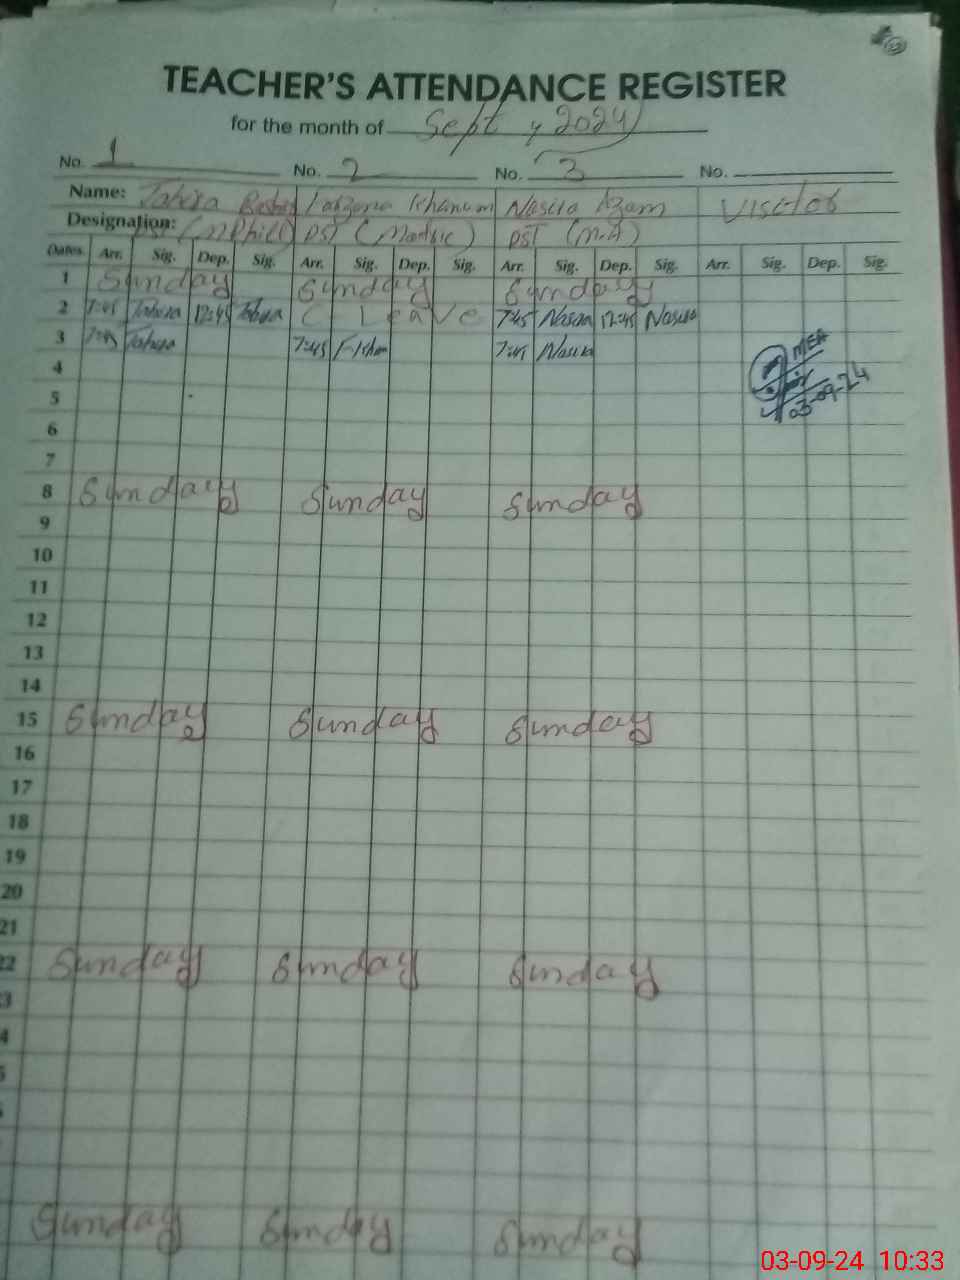 TEACHER'S ATTENDANCE REGISTER
for the month of Sept, 2024
No. 1 No. 2 No. 3 No.
Name: Tahira Khanum Nasira Azam Visitor
Designation: (M.Phil) PST (Matric) PST (M.A)
Dates Arr. Sig. Dep. Sig. Arr. Sig. Dep. Sig. Arr. Sig. Dep. Sig. Arr. Sig. Dep. Sig.
1 Sunday Sunday Sunday
2 7:45 Tahira 12:45 Tahira C Leave 7:45 Nasira 12:45 Nasira
3 7:45 Tahira 7:45 7:45 Nasira MEA
4
03-09-24
5
6
7
8 Sunday Sunday Sunday
9
10
11
12
13
14
15 Sunday Sunday Sunday
16
17
18
19
20
21
22 Sunday Sunday Sunday
3
4
5
Sunday Sunday Sunday
03-09-24 10:33